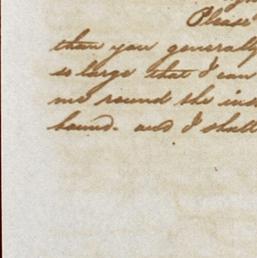 Please
than you generally
so large that I can
me round the ins
hound. and I shall